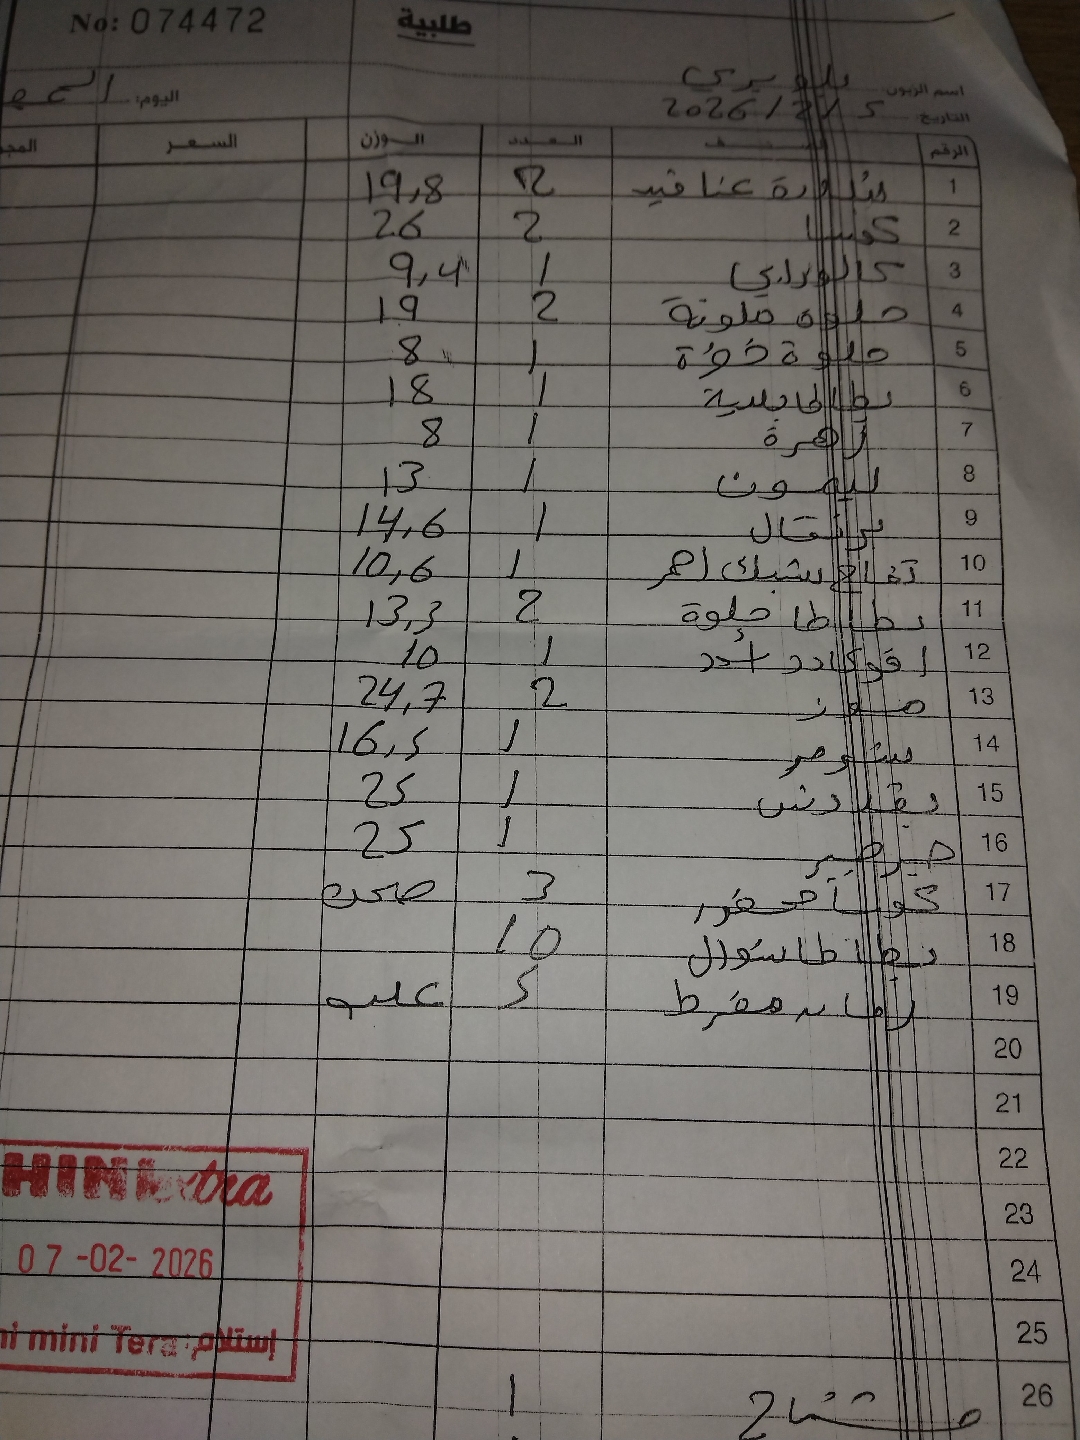 No: 074472 طلبية
اسم الزبون:
اليوم:
التاريخ: 2026/2/5
الرقم العدد الوزن السعر
1 بندورة عناقيد 2 19,8
2 كوسا 2 26
3 1 9,4
4 حلوة ملونة 2 19
5 حلوة 1 8
6 بطاطا بلدية 1 18
7 زهرة 1 8
8 ليمون 1 13
9 برتقال 1 14,6
10 تفاح شبك احمر 1 10,6
11 بطاطا حلوة 2 13,3
12 افوكادو 1 10
13 موز 2 24,7
14 1 16,5
15 بقدونس 1 25
16 1 25
17 كوسا محفور 3 صحن
18 بطاطا شوال 10
19 مفرط 5 علب
20
21
22
23
24
25
26 1
HINI xtra
07-02-2026
ni mini Tera إستلام: